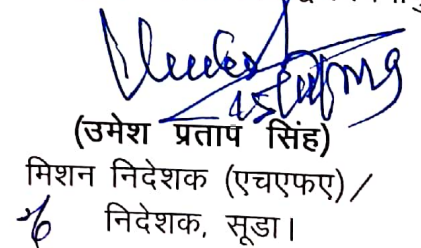 (उमेश प्रताप सिंह)
मिशन निदेशक (एचएफए) /
निदेशक, सूडा।